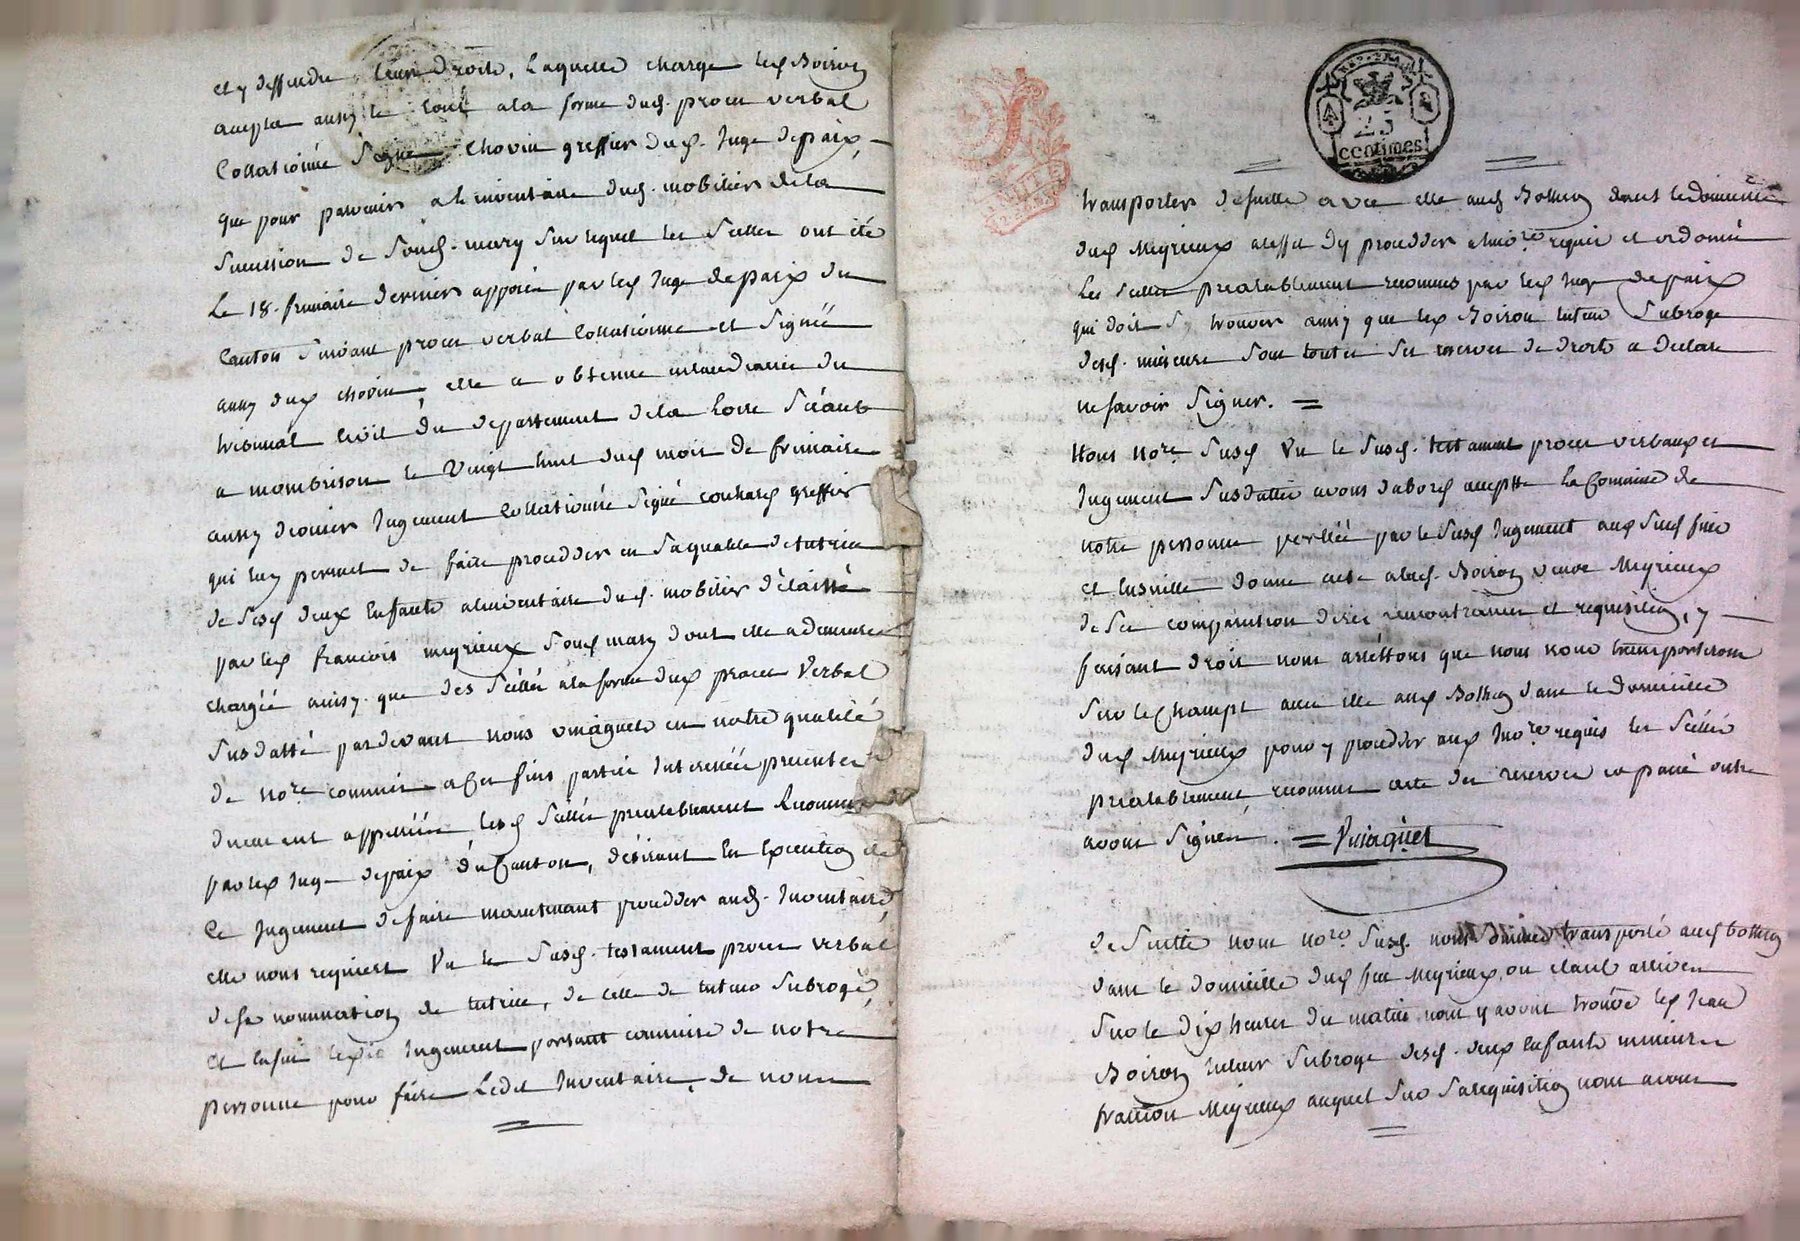 et y deffendre leurs droits, laquelle charge led Boiron
accepta aussy le tout a la forme dud. proces verbal
Collationné Signé Chovin greffier dud. Juge de paix,
que pour parvenir a l'inventaire dud. mobilier de la
succession de Sond. mary sur lequel les scellés ont été
Le 18. frimaire dernier apposés par led Juge de paix du
Canton suivant proces verbal Collationné et Signé
aussy dud chovin, elle a obtenue du
tribunal Civil du département de la Loire Séant
a monbrison le vingt huit dud mois de frimaire
aussy dernier Jugement Collationné Signé greffier
qui luy permet de faire procedder en Sa qualité de tutrice
de Sesd deux Enfants a l'inventaire dud. mobilier délaissé
par led francois meyrieux Sond mary dont elle a demeuré
chargée ainsy que des Scéllés a la forme dud proces Verbal
Susdatté pardevant nous vinaguet en notre qualité
de no.re commis a Ces fins parties Interessées presentes
duement appellées lesd Scéllés prealablement Reconnus
par led Juge de paix du Canton, désirant En Execution de
Ce Jugement de faire maintenant procedder aud. Inventaire,
elle nous requiert Vu le Susd. testament proces verbal
de sa nomination de tutrice, de celle de tuteur Subrogé,
et Enfin led Jugement portant commise de notre
personne pour faire Ledit Inventaire, de nous
25
centimes
transporter de suitte avec elle aud Bothion dans le domicille
dud Meyrieux a l'effet d'y procedder a l'inv.re requis et ordonné
Les scéllés prealablement reconnus par led Juge de paix
qui doit S'y trouver aussy que led Boiron tuteur Subrogé
desd. mineurs sous toutes Ses reserves de droits a declaré
ne savoir Signer. =
Nous no.re Susd Vu le Susd. testament proces verbaux et
Jugement Susdattés avons d'abord accepté la Commise de
notre personne par le Susd Jugement aux Susd fins
et Ensuitte donné acte a lad. Boiron veuve Meyrieux
de Ses comparution dires remontrances et requisition, y
faisant droit nous arrêttons que nous nous transporterons
Sur le Champt avec elle aud Bothion dans le domicille
dud Meyrieux pour y procedder aux Inv.re requis les Scéllés
prealablement reconnus acte des reserves
avons Signé. = Vinaguet
de Suitte nous no.re Susd. nous sommes transporté aud bothion
dans le domicille dud feu Meyrieux, ou étant arrivés
Sur le dix heures du matin nous y avons trouvé led Jean
Boiron tuteur Subrogé desd. deux Enfants mineurs a
francois Meyrieux auquel Sur Sa requisition nous avons